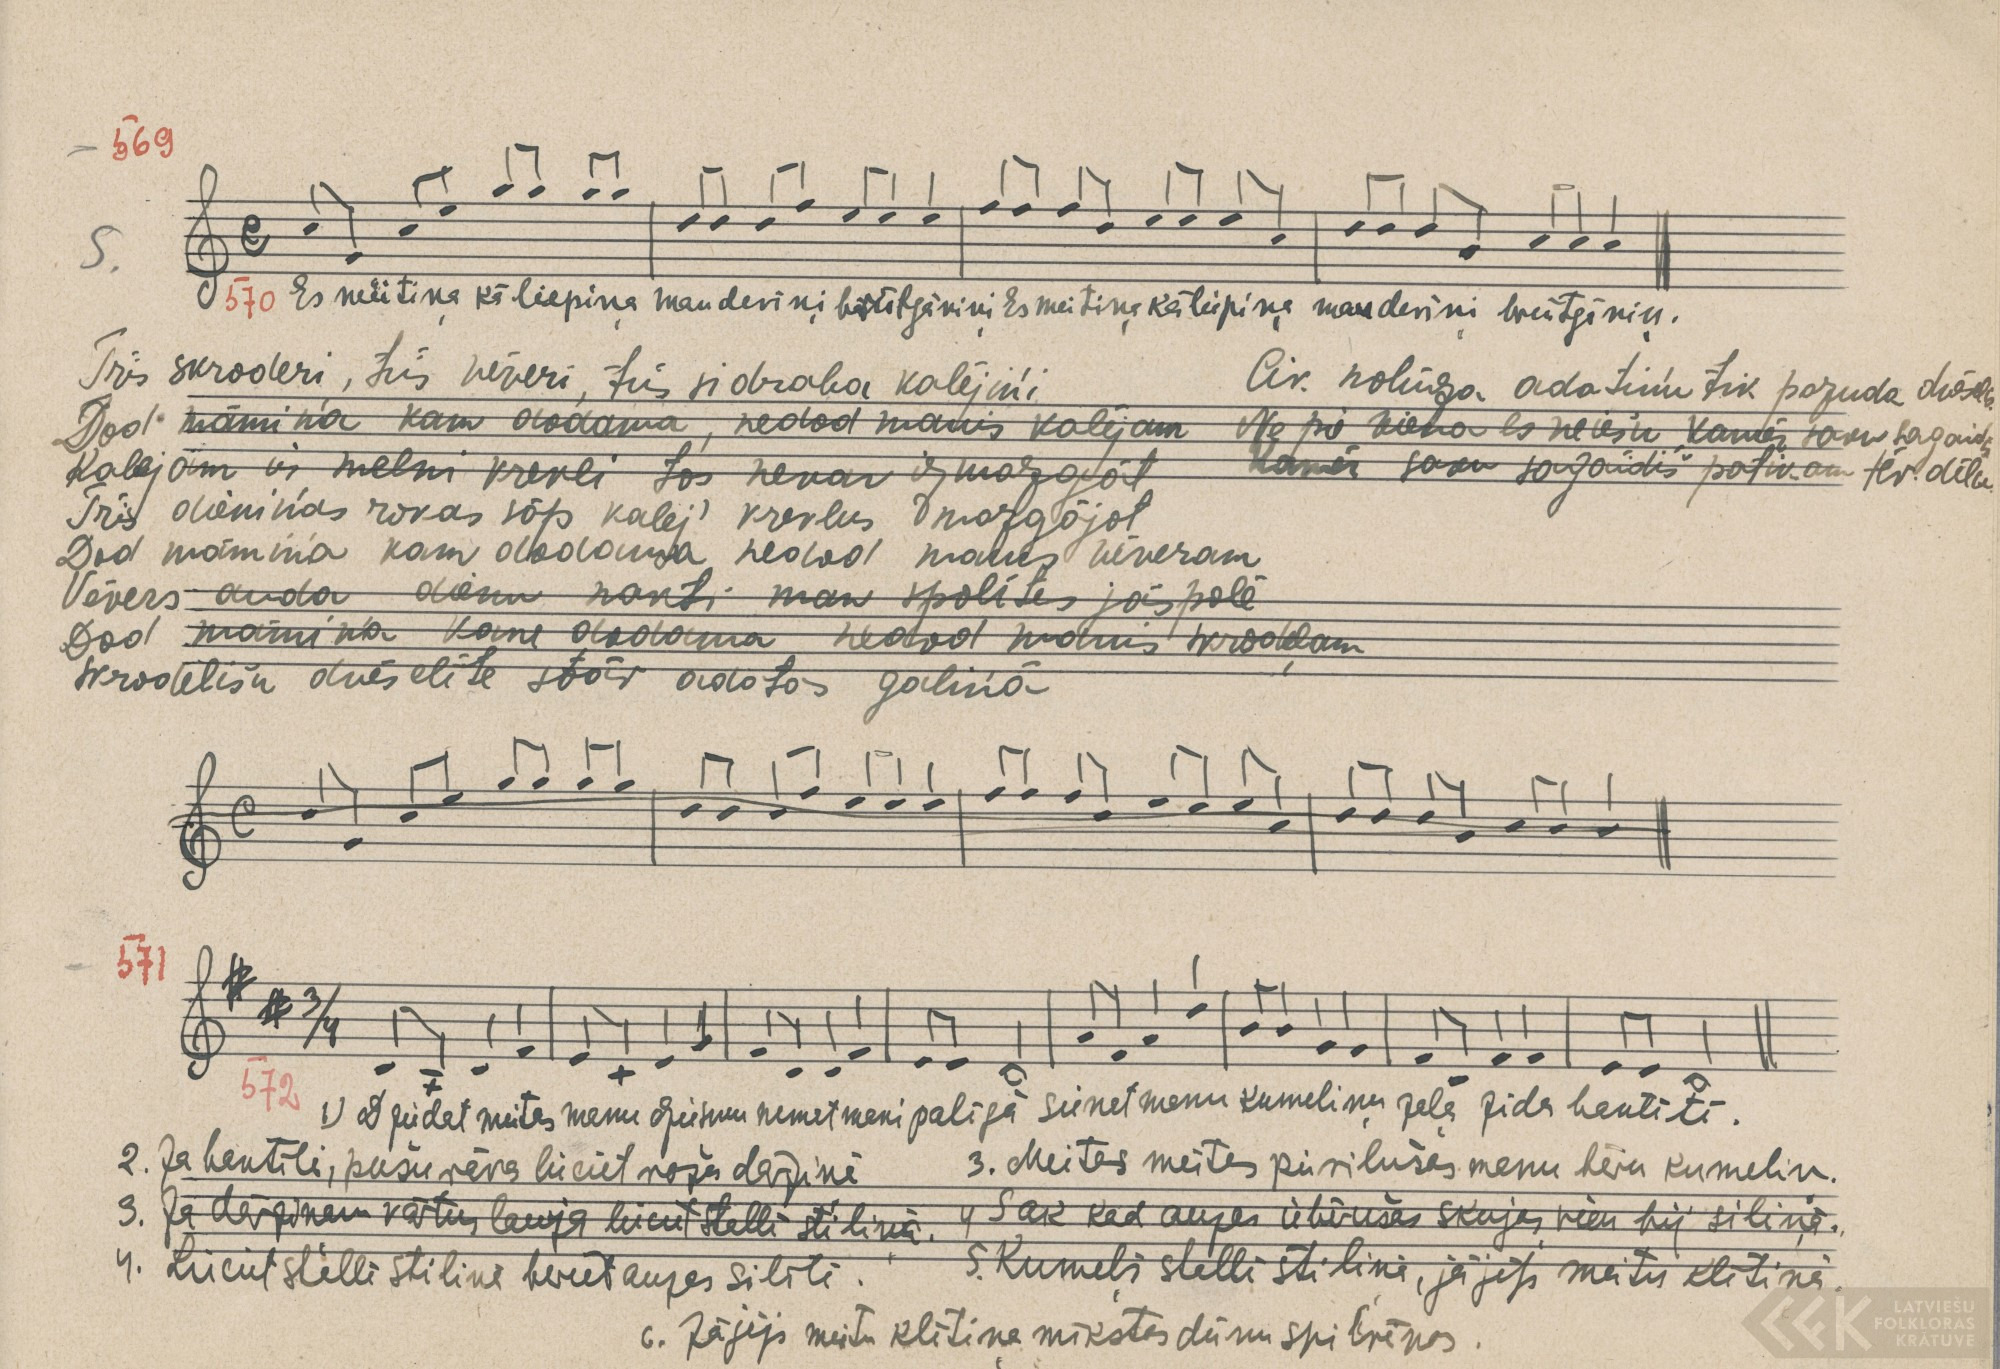 569
S.
570 Es meitiņa kā liepiņa man deviņi brūtgāniņi Es meitiņa kā liepiņa man deviņi brūtgāniņi.
Trīs skroderi, trīs vēveri, trīs sidraba kalējiņi
Dod māmiņa kam dodama, nedod manis kalējam
Kalējam ir melni krekli tos nevar izmazgāt
Trīs dieniņas rokas sāp kalēj' kreklus mazgājot
Dod māmiņa kam dodama nedod manis vēveram
Vēvers auda dienu nakti man spolītes jāspolē
Dod māmiņa kam dodama nedod manis skroderam
skrodelišu dvēselīte stāv adatas galiņā
Cik nolūza adatiņu tik pazuda
Ne pie viena es neiešu kamēr savu
kamēr savu sagaidīš' patikam tēv. dēlu
571
3/4
572 1) Dziedat meitas manu dziesmu nemet mani palīgā sienet manu kumeliņu zaļa zīda
2. Ja pušu rāva lieciet rožu dārziņā
3. Ja dārziņam vārtus lauza lieciet stallī stiliņā.
4. Lieciet stallī stiliņā beriet auzas silītē.
3. Meitas meitas manu bēru kumeliņ.
4 Sak kad auzas skujas vien bij siliņā.
5. Kumeļš stallī stiliņā, jājējs meitu klētiņā.
6. Jājējs meitu klētiņa mīkstas dūnu
LATVIEŠU
FOLKLORAS
KRĀTUVE